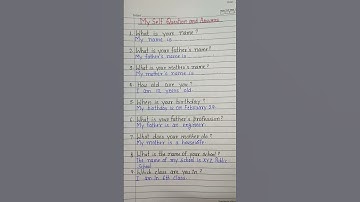 My Self Question and Answers
1. What is your name?
My name is
2. What is your father's name?
My father's name is
3. What is your mother's name?
My mother's name is
4. How old are you?
I am 12 years old.
5. When is your birthday?
My birthday is on February 24.
6. What is your father's profession?
My father is an engineer.
7. What does your mother do?
My mother is a housewife.
8. What is the name of your school?
The name of my school is XYZ Public
School.
9. Which class are you in?
I am in 6th class.